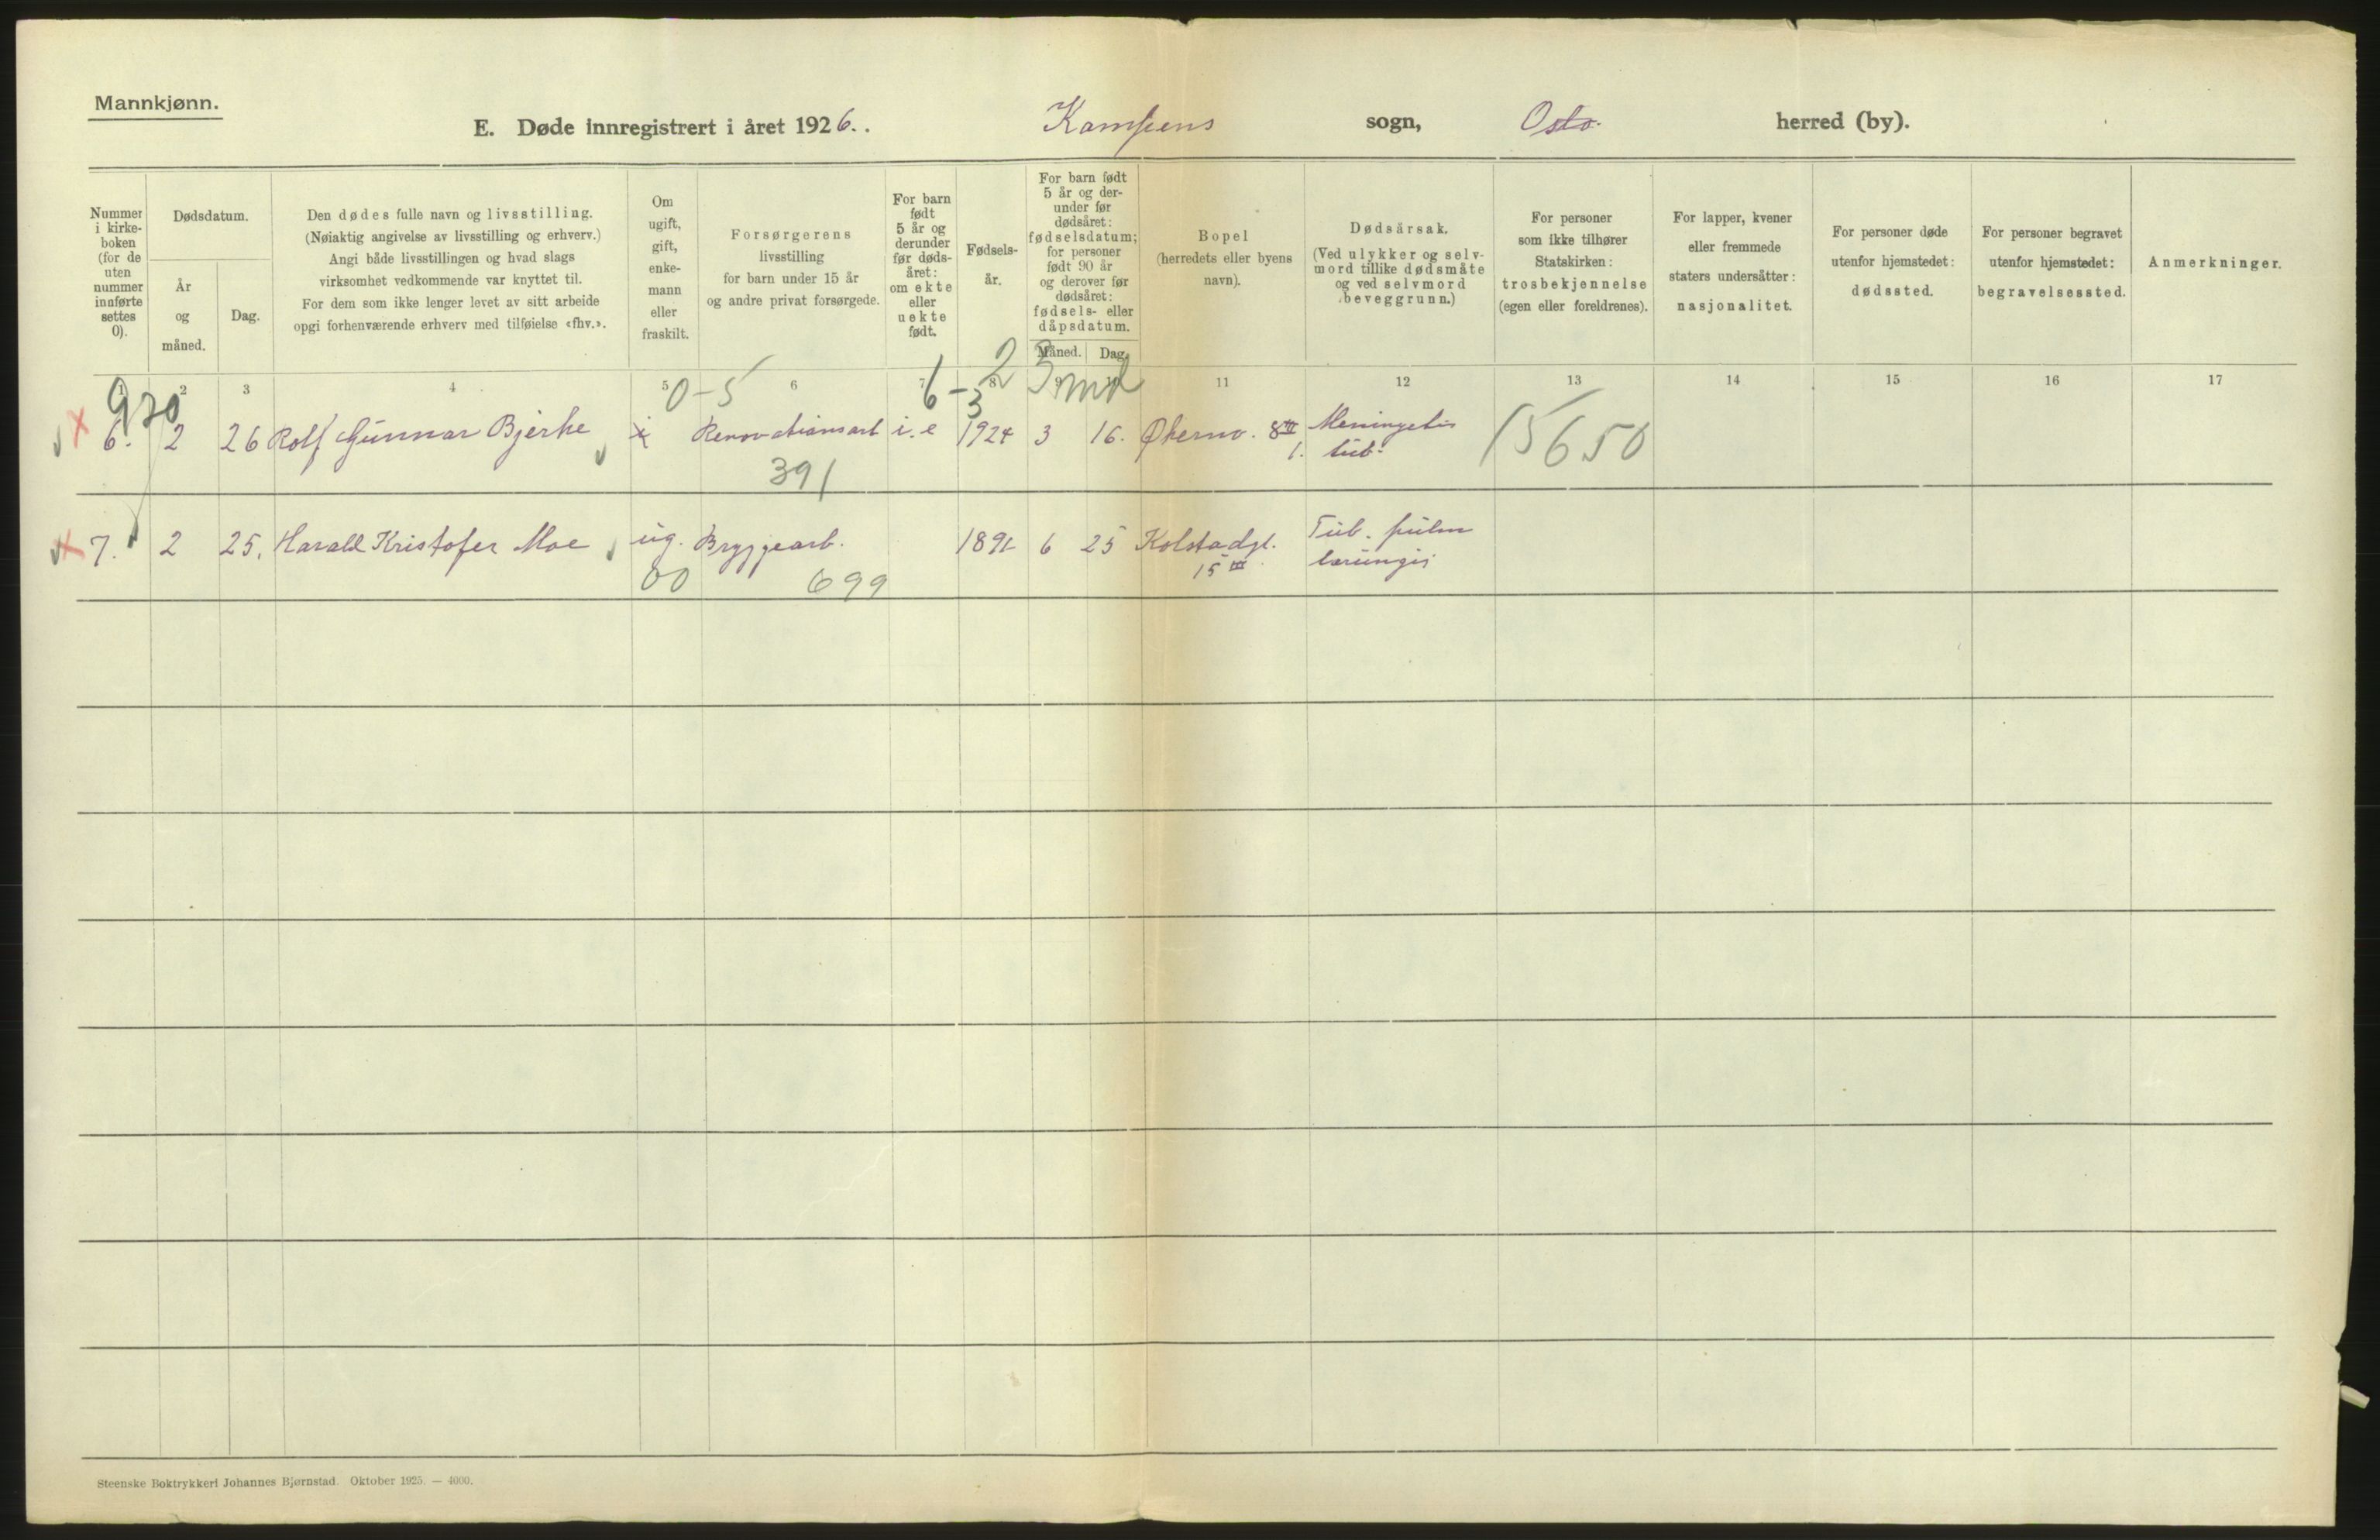 Mannkjønn.
E. Døde innregistrert i året 1926. . Kampens sogn, Oslo. herred (by).
Nummer
i kirke-
boken
(for de
uten
nummer
innførte
settes
0).
Dødsdatum.
År
og
måned.
Dag.
Den dødes fulle navn og livsstilling.
(Nøiaktig angivelse av livsstilling og erhverv.)
Angi både livsstillingen og hvad slags
virksomhet vedkommende var knyttet til.
For dem som ikke lenger levet av sitt arbeide
opgi forhenværende erhverv med tilføielse «fhv.».
Om
ugift,
gift,
enke-
mann
eller
fraskilt.
Forsørgerens
livsstilling
for barn under 15 år
og andre privat forsørgede.
For barn
født
5 år og
derunder
før døds-
året:
om ekte
eller
uekte
født.
Fødsels-
år.
For barn født
5 år og der-
under før
dødsåret:
fødselsdatum;
for personer
født 90 år
og derover før
dødsåret:
fødsels- eller
dåpsdatum.
Måned. Dag.
Bopel
(herredets eller byens
navn).
Dødsårsak.
(Ved ulykker og selv-
mord tillike dødsmåte
og ved selvmord
beveggrunn.)
For personer
som ikke tilhører
Statskirken:
trosbekjennelse
(egen eller foreldrenes).
For lapper, kvener
eller fremmede
staters undersåtter:
nasjonalitet.
For personer døde
utenfor hjemstedet:
dødssted.
For personer begravet
utenfor hjemstedet:
begravelsessted.
Anmerkninger.
1 2 3 4 5 6 7 8 9 10 11 12 13 14 15 16 17
0-5 6-3 2 3 md
6. 2 26 Rolf Gunnar Bjerke Renovationsarb i. e 1924 3 16. Økernv. 8 III Meningetis
1. tub.
391 15650
7. 2 25. Harald Kristofer Moe ug. Bryggearb. 1891 6 25 Kolstadgt. Tub. pulm
15 III
00 699
Steenske Boktrykkeri Johannes Bjørnstad. Oktober 1925. — 4000.